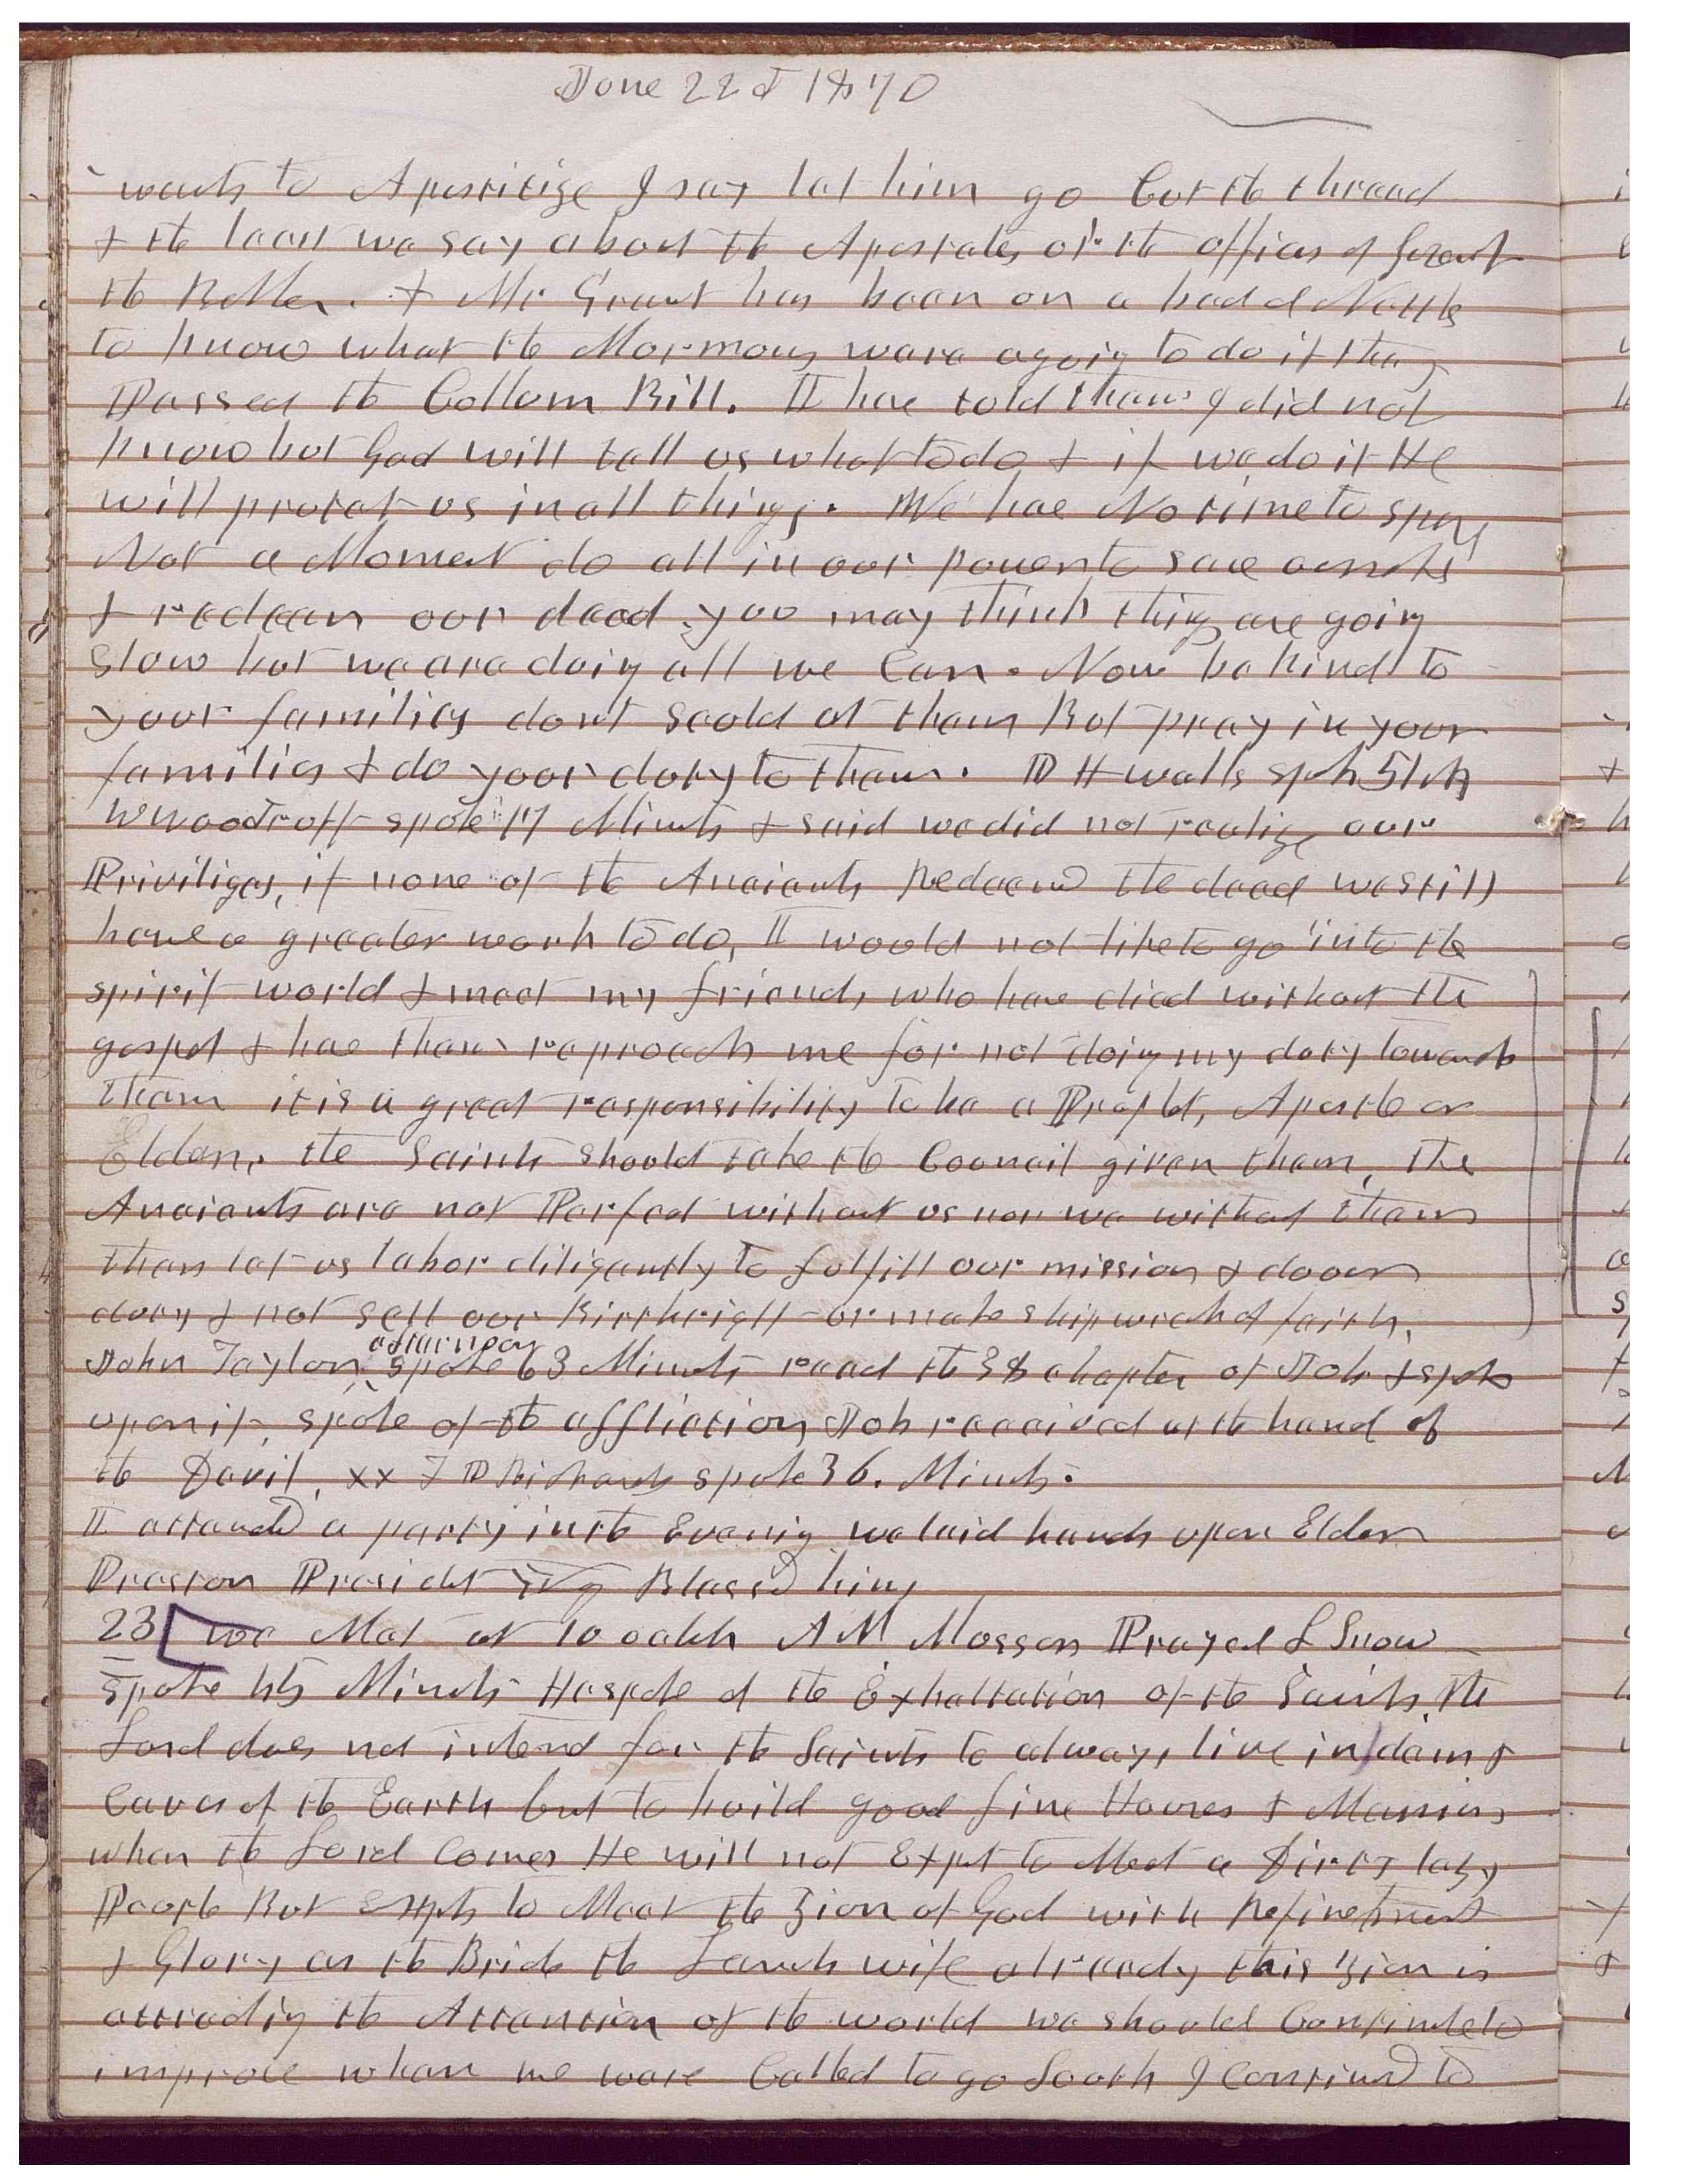 June 22d 1870
wants to Apostitize I say let him go Cut the thread
& the least we say about the Apostates or the officers of Govent
the Better. & Mr Grant has been on a bad d Nettle
to know what the Mormons ware agoing to do if they
Passed the Collom Bill. I have told them I did not
know but God will tell us what to do & if we do it He
will protect us in all things. We have No time to spare
Not a Moment do all in our power to save ourselves
& redeem our dead you may think things are going
slow but we are doing all we Can. Now be kind to
your families dont scold at them But pray in your
families & do your duty to them. D H wells spoke 51 M
W woodruff spoke 17 Minuts & said we did not realize our
Priviliges, if none of the Anciants Redeemd the dead we still
have a greater work to do, I would not like to go into the
spirit world & meet my friends who have died without the
gospel & have them reproach me for not doing my duty towards
them it is a great responsibility to be a Prophet, Apostle or
Elder. the Saints should take the Council given them, The
Anciants are not Perfect without us nor we without them
then let us labor diligently to fulfill our mission & do our
duty & not sell our Birthright or make shipwreck of faith.
John Taylor afternoon spoke 63 Minuts read the 38 chapter of Job & spoke
upon it, spoke of the affliction Job received at the hand of
the Devil, xx F D Richards spoke 36. Minuts.
I attended a party in the Evening we laid hands upon Elder
Preston President Yg Blessed him
23 we Met at 10 oclok AM Mosser Prayed L Snow
spoke 45 Minuts He spoke of the Exhaltation of the Saints, the
Lord does not intend for the Saints to always live in dains &
Caves of the Earth but to build good fine Houses & Mansions
when the Lord Comes He will not Expet to Meet a Dirty lazy
People But Expets to Meet the Zion of God with Refinement
& Glory as the Bride the Lambs wife already this Zion is
attracting the Attention of the world we should Continue to
improve when we ware Called to go South I Continued to